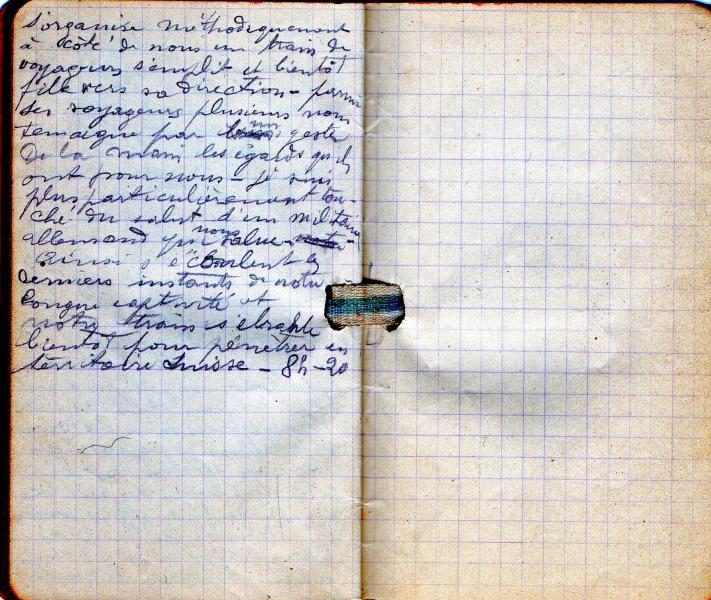 s'organise méthodiquement
à côté de nous un train de
voyageurs s'emplit et bientôt
file vers sa direction - parmi
ses voyageurs plusieurs nous
temoigne par un geste
de la main les égards qu'ils
ont pour nous - je suis
plus particulièrement tou-
ché du salut d'un militaire
allemand qui nous salue -
Ainsi s'écoulent les
derniers instants de notre
longue captivité et
notre train s'ébranle
bientôt pour pénétrer en
territoire Suisse - 8h - 20